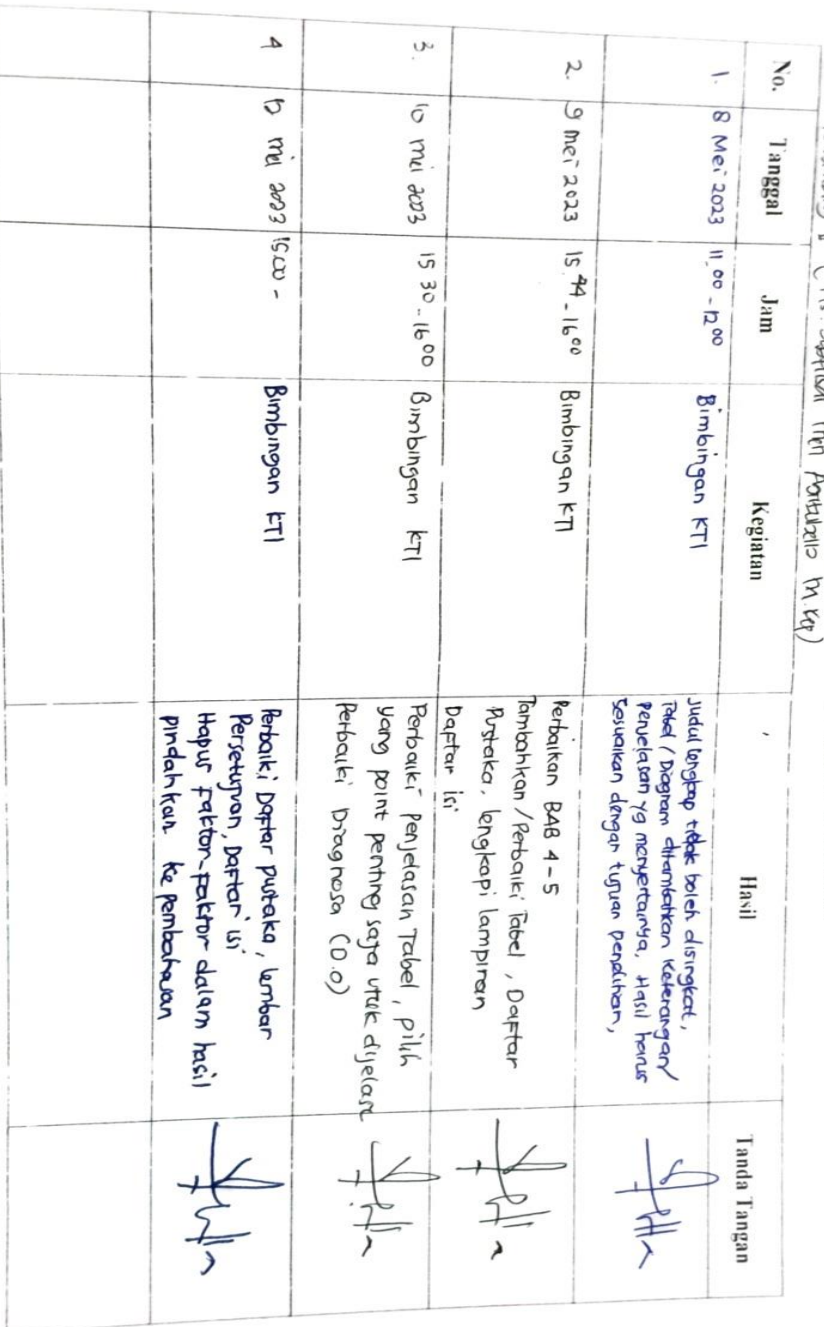 m.kep)
No. Tanggal Jam Kegiatan Hasil Tanda Tangan
1. 8 Mei 2023 11.00 - 12.00 Bimbingan KTI
Judul lengkap tidak boleh disingkat,
Tabel / Diagram ditambahkan keterangan/
penjelasan yg menyertainya, Hasil harus
sesuaikan dengan tujuan penelitian,
2. 9 mei 2023 15.44 - 16.00 Bimbingan KTI
Perbaikan BAB 4-5
Tambahkan / Perbaiki Tabel, Daftar
Pustaka, lengkapi lampiran
Daftar isi
3. 10 mei 2023 15 30 - 16 00 Bimbingan KTI
Perbaiki penjelasan Tabel, pilih
yang point penting saja utuk dijelask
Perbaiki Diagnosa (D.O)
4 12 mei 2023 15.00 - Bimbingan KTI
Perbaiki Daftar pustaka, lembar
Persetujuan, Daftar isi
Hapus faktor-faktor dalam hasil
pindahkan ke pembahasan